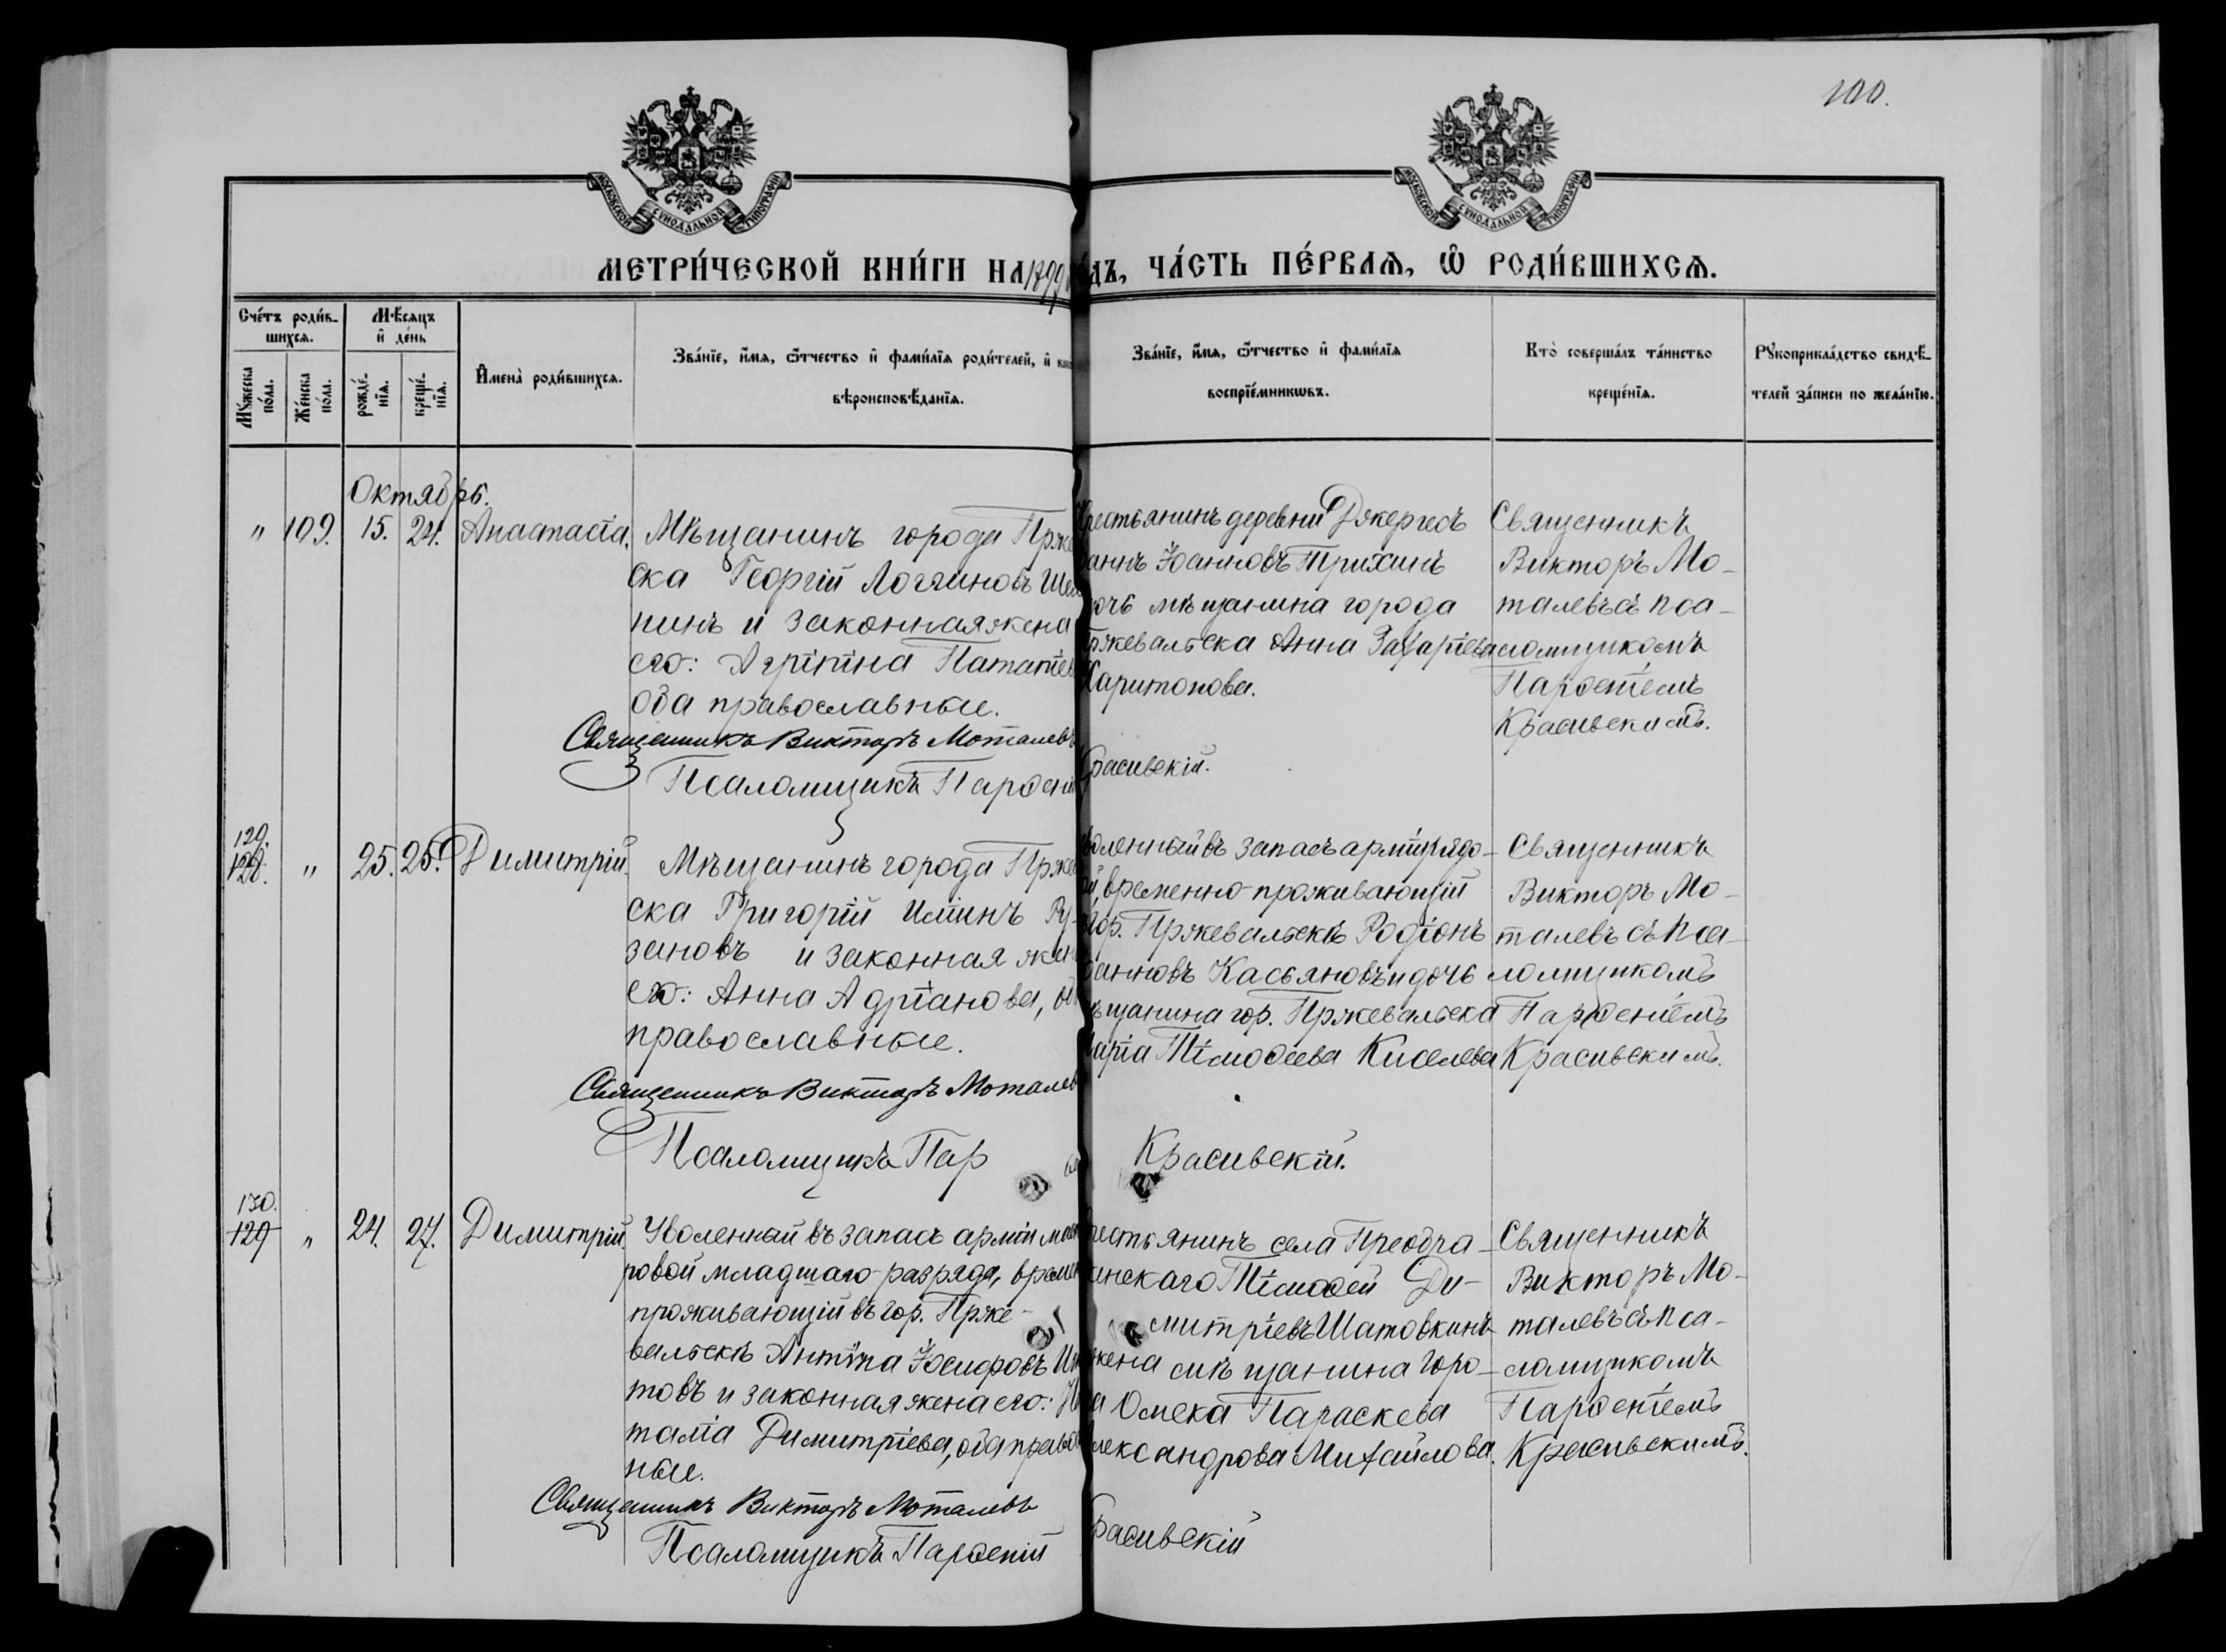 100.
МОСКОВСКОЙ СѴНОДАЛЬНОЙ ТИПОГРАФІИ
МОСКОВСКОЙ СѴНОДАЛЬНОЙ ТИПОГРАФІИ
МЕТРИ́ЧЕСКОЙ КНИ́ГИ НА 1899
ДЪ, ЧА́СТЬ ПЕ́РВАѦ, Ѡ҆ РОДИ́ВШИХСѦ.
Сче́тъ роди́в-
шихсѧ.
Мꙋ́жеска
по́ла.
Же́нска
по́ла.
Мѣ́сѧцъ
и҆ де́нь
рожде́-
нїѧ.
креще́-
нїѧ.
И҆мена̀ роди́вшихсѧ.
Зва́нїе, и҆́мѧ, ѻ҆́тчество и҆ фами́лїѧ роди́телей, и҆
вѣроисповѣ́данїѧ.
Зва́нїе, и҆́мѧ, ѻ҆́тчество и҆ фами́лїѧ
воспрїе́мникѡвъ.
Кто̀ соверша́лъ та́инство
креще́нїѧ.
Рꙋкоприкла́дство свидѣ́-
телей за́писи по жела́нїю.
Октябрь.
" 109. 15. 24. Анастасія.
Мѣщанинъ города Прже
ска Георгій Логгиновъ Ше
нинъ и законная жена
его: Агріпіна Патапіев
оба православные.
Священникъ Викторъ Моталевъ
Псаломщикъ Парѳеній
Крестьянинъ деревни Джергесъ
Іоаннъ Іоанновъ Трихинъ
дочь мѣщанина города
Пржевальска Анна Захаріева
Харитонова.
Красивскій.
Священникъ
Викторъ Мо-
талевъ съ пса-
ломщикомъ
Парѳеніемъ
Красивскимъ.
129.
128. " 25. 25. Димитрій.
Мѣщанинъ города Прже
ска Григорій Иминъ Ру-
зановъ и законная жен
его: Анна Адріанова, об
православные.
Священникъ Викторъ Моталев
Псаломщикъ Пар
воленный въ запасъ арміи рядо-
й, временно-проживающій
гор. Пржевальскѣ Родіонъ
оанновъ Касьяновъ и дочь
ѣщанина гор. Пржевальска
Марія Тімоѳеева Киселева
Красивскій.
Священникъ
Викторъ Мо-
талевъ съ пса-
ломщикомъ
Парѳеніемъ
Красивскимъ.
130.
129 " 24. 27. Димитрій.
Уволенный въ запасъ арміи ма
ровой младшаго разряда, времен
проживающій въ гор. Прже-
вальскѣ Антіпа Іосифовъ
товъ и законная жена его: На
талія Димитріева, оба правос
ные.
Священникъ Викторъ Моталевъ
Псаломщикъ Парѳеній
рестьянинъ села Преобра-
женскаго Тімоѳей Ди-
митріевъ Шатовкинъ
жена мѣщанина горо-
да Омска Параскева
Александрова Михайлова.
Красивскій
Священникъ
Викторъ Мо-
талевъ съ пса-
ломщикомъ
Парѳеніемъ
Красивскимъ.